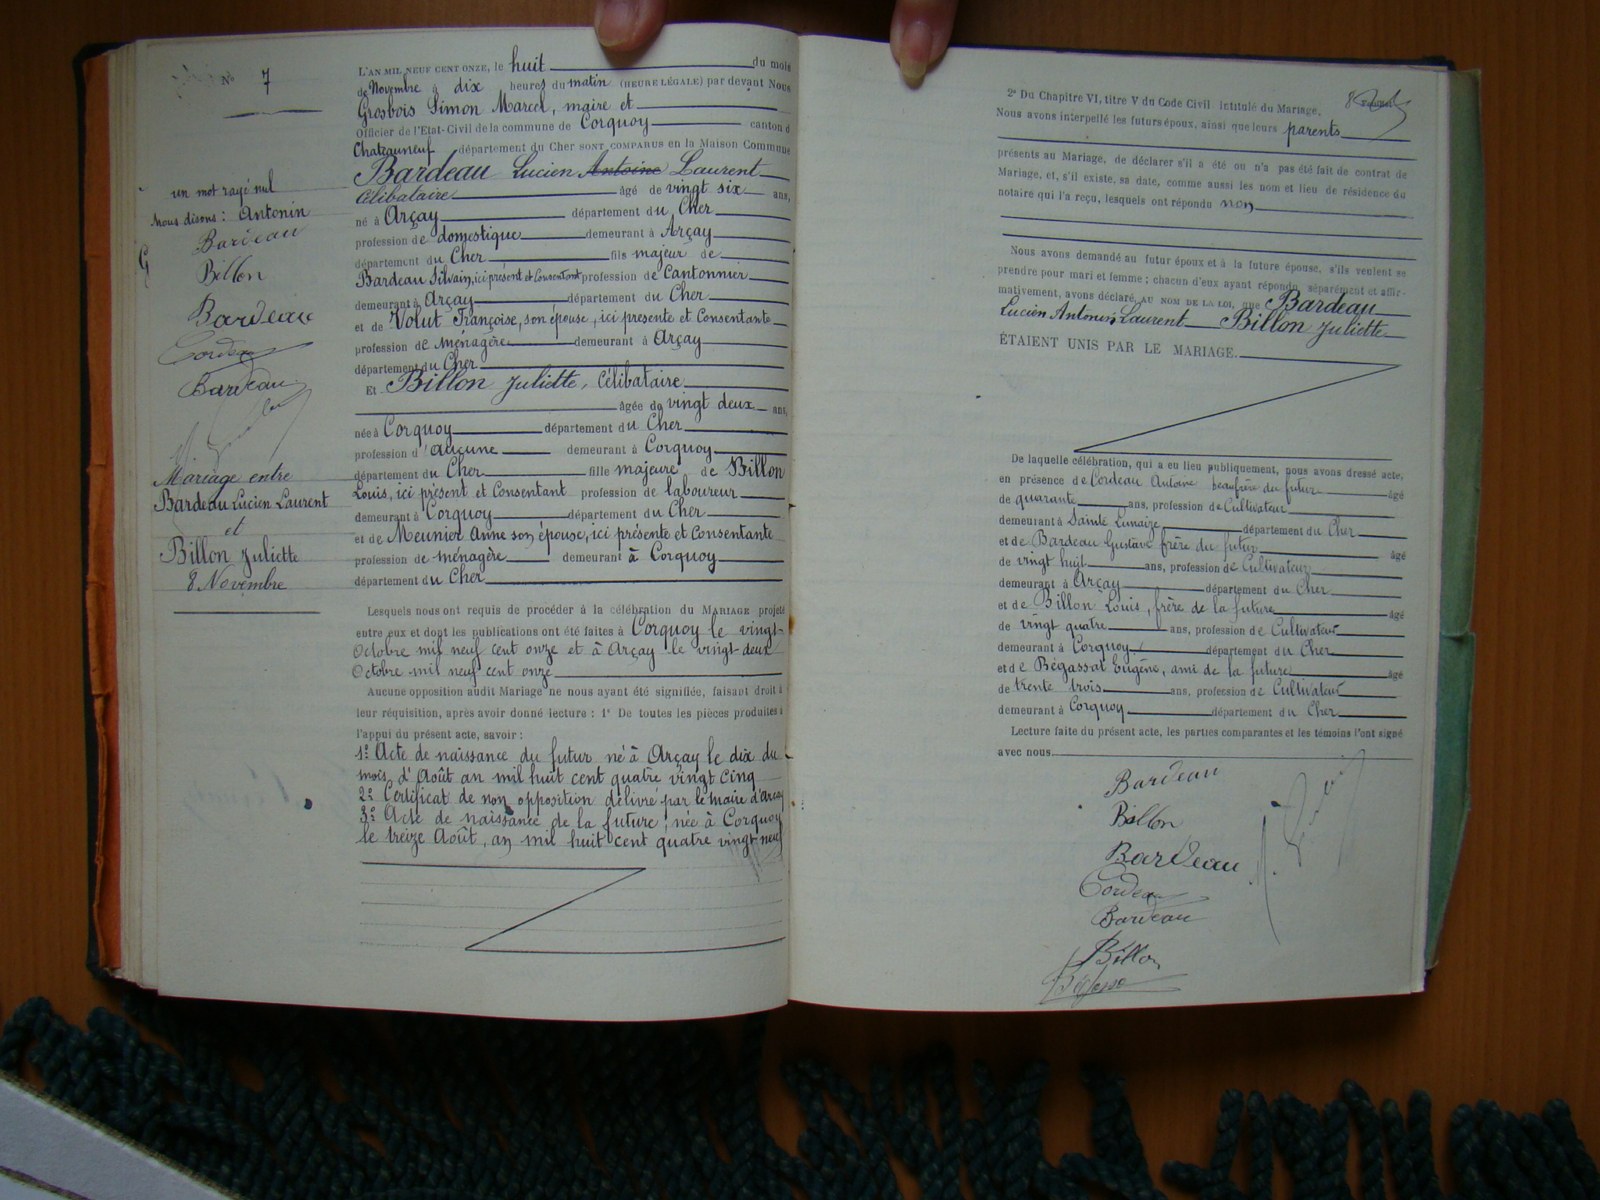 7
un mot rayé nul
Nous disons : Antonin
Bardeau
Billon
Bardeau
Cordeau
Bardeau
Mariage entre
Bardeau Lucien Laurent
et
Billon Juliette
8 Novembre
L'AN MIL NEUF CENT ONZE, le huit du mois
de Novembre à dix heures du matin (HEURE LÉGALE) par devant Nous
Grosbois Simon Marcel, maire et
Officier de l'Etat-Civil de la commune de Corquoy canton d
Chateauneuf département du Cher SONT COMPARUS en la Maison Commune
Bardeau Lucien Antoine Laurent
Célibataire âgé de vingt six ans,
né à Arçay département du Cher
profession de domestique demeurant à Arçay
département du Cher fils majeur de
Bardeau Silvain, ici présent et Consentant profession de Cantonnier
demeurant à Arçay département du Cher
et de Volut Françoise, son épouse, ici présente et Consentante
profession de ménagère demeurant à Arçay
département du Cher
Et Billon Juliette, Célibataire
âgée de vingt deux ans,
née à Corquoy département du Cher
profession d'aucune demeurant à Corquoy
département du Cher fille majeure de Billon
Louis, ici présent et Consentant profession de laboureur
demeurant à Corquoy département du Cher
et de Meunier Anne son épouse, ici présente et Consentante
profession de ménagère demeurant à Corquoy
département du Cher
Lesquels nous ont requis de procéder à la célébration du MARIAGE projeté
entre eux et dont les publications ont été faites à Corquoy le vingt-
Octobre mil neuf cent onze et à Arçay le vingt-deux
Octobre mil neuf cent onze
Aucune opposition audit Mariage ne nous ayant été signifiée, faisant droit à
leur réquisition, après avoir donné lecture : 1° De toutes les pièces produites à
l'appui du présent acte, savoir :
1° Acte de naissance du futur né à Arçay le dix du
mois d'Août an mil huit cent quatre vingt cinq
2° Certificat de non opposition délivré par le maire d'Arçay
3° Acte de naissance de la future, née à Corquoy
le treize Août, an mil huit cent quatre vingt-neuf
2° Du Chapitre VI, titre V du Code Civil intitulé du Mariage,
Nous avons interpellé les futurs époux, ainsi que leurs parents
présents au Mariage, de déclarer s'il a été ou n'a pas été fait de contrat de
Mariage, et, s'il existe, sa date, comme aussi les nom et lieu de résidence du
notaire qui l'a reçu, lesquels ont répondu non
Nous avons demandé au futur époux et à la future épouse, s'ils veulent se
prendre pour mari et femme ; chacun d'eux ayant répondu séparément et affir-
mativement, avons déclaré AU NOM DE LA LOI, que Bardeau
Lucien Antonin Laurent Billon Juliette
ÉTAIENT UNIS PAR LE MARIAGE.
De laquelle célébration, qui a eu lieu publiquement, nous avons dressé acte,
en présence de Cordeau Antoine beau frère du futur âgé
de quarante ans, profession de Cultivateur
demeurant à Sainte Lunaize département du Cher
et de Bardeau Gustave frère du futur âgé
de vingt huit ans, profession de Cultivateur
demeurant à Arçay département du Cher
et de Billon Louis, frère de la future âgé
de vingt quatre ans, profession de Cultivateur
demeurant à Corquoy département du Cher
et de Bégassat Eugène, ami de la future âgé
de trente trois ans, profession de Cultivateur
demeurant à Corquoy département du Cher
Lecture faite du présent acte, les parties comparantes et les témoins l'ont signé
avec nous
Bardeau
Billon
Bardeau
Cordeau
Bardeau
Billon